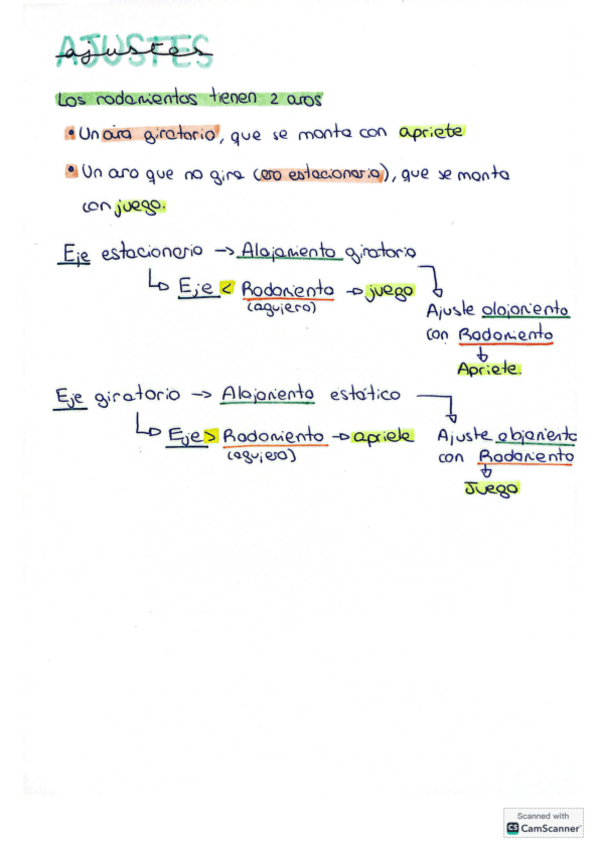 AJUSTES
ajustes
Los rodamientos tienen 2 aros
• Un aro giratorio, que se monta con apriete
• Un aro que no gira (aro estacionario), que se monta
con juego.
Eje estacionario → Alojamiento giratorio
↳ Eje < Rodamiento → juego
(agujero)
Ajuste alojamiento
con Rodamiento
↓
Apriete.
Eje giratorio → Alojamiento estático
↳ Eje > Rodamiento → apriete
(agujero)
Ajuste alojamiento
con Rodamiento
↓
Juego
Scanned with
CS CamScanner